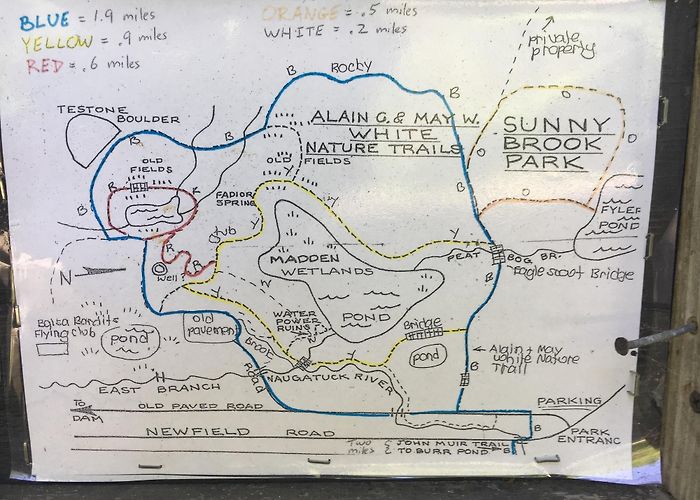 BLUE = 1.9 miles
YELLOW = .9 miles
RED = .6 miles
ORANGE = .5 miles
WHITE = .2 miles
private
property
B
Rocky
B
TESTONE
BOULDER
B
B
ALAIN G. & MAY W.
WHITE
NATURE TRAILS
SUNNY
BROOK
PARK
O
O
O
O
OLD
FIELDS
OLD
FIELDS
Y
B
R
R
FADIOR
SPRING
Y
B
FYLER
POND
B
R
Y
Y
PEAT
BOG BR.
Eagle scout Bridge
MADDEN
WETLANDS
POND
N
Well
R
W
Y
B
B
WATER
POWER
RUINS
Bridge
Balsa Bandits
Flying club
pond
old
pavement
Brook
Road
Y
pond
Alain + May
White Nature
Trail
B
EAST BRANCH
NAUGATUCK RIVER
TO
DAM
OLD PAVED ROAD
PARKING
NEWFIELD ROAD
B
PARK
ENTRANC
TWO
miles
JOHN MUIR TRAIL
TO BURR POND
B